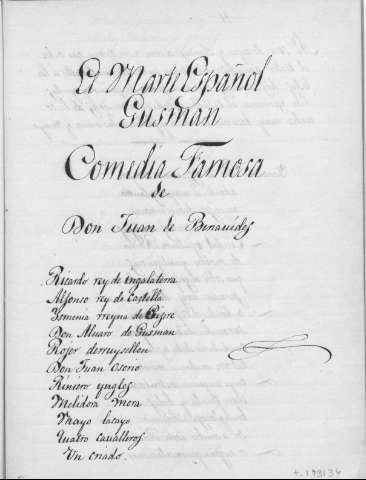 El Marte Español
Gusman
Comedia Famosa
de
Don Juan de Benauides
Ricardo rey de ingalaterra
Alfonso rey de Castella
Ismenia rreyna de Cipre
Don Aluaro de Gusman
Rojer de rruysellon
Don Juan Osorio
Riniero yngles
Melidora mora
Mayo lacayo
Quatro caualleros
Un criado.
t. 193134